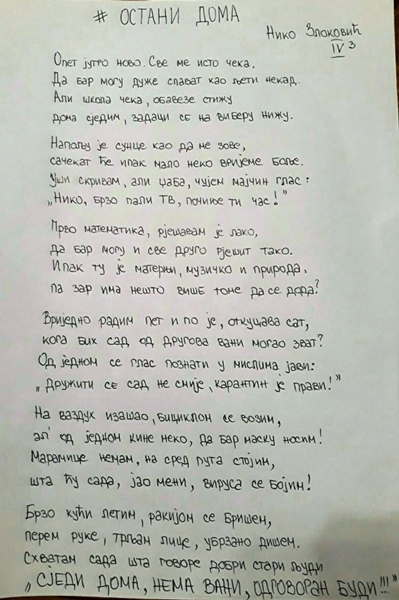 # ОСТАНИ ДОМА
Нико Злоковић
IV 3
Опет јутро ново. Све ме исто чека.
Да бар могу дуже спават као љети некад.
Али школа чека, обавезе стижу
дома сједим, задаци се на виберу нижу.
Напољу је сунце као да ме зове,
сачекат ће ипак мало неко вријеме боље.
Уши скривам, али џаба, чујем мајчин глас:
„Нико, брзо пали ТВ, почиње ти час!"
Прво математика, рјешавам је лако,
да бар могу и све друго рјешит тако.
Ипак ту је матерњи, музичко и природа,
па зар има нешто више томе да се дода?
Вриједно радим пет и по је, откуцава сат,
кога бих сад од другова вани могао зват?
Од једном се глас познати у мислима јави:
„Дружити се сад не смије, карантин је прави!"
На ваздух изашао, бициклом се возим,
ал' од једном кине неко, да бар маску носим!
Марамице немам, на сред пута стојим,
шта ћу сада, јао мени, вируса се бојим!
Брзо кући летим, ракијом се бришем,
перем руке, трљам лице, убрзано дишем.
Схватам сада шта говоре добри стари људи
„СЈЕДИ ДОМА, НЕМА ВАНИ, ОДГОВОРАН БУДИ!!!"